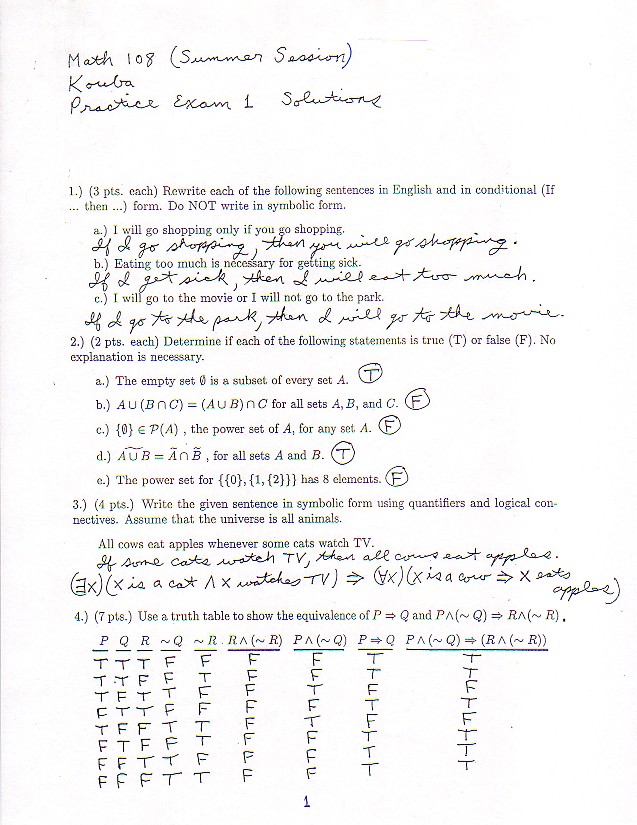 Math 108 (Summer Session)
Kouba
Practice Exam 1 Solutions
1.) (3 pts. each) Rewrite each of the following sentences in English and in conditional (If
... then ...) form. Do NOT write in symbolic form.
a.) I will go shopping only if you go shopping.
If I go shopping, then you will go shopping.
b.) Eating too much is necessary for getting sick.
If I get sick, then I will eat too much.
c.) I will go to the movie or I will not go to the park.
If I go to the park, then I will go to the movie.
2.) (2 pts. each) Determine if each of the following statements is true (T) or false (F). No
explanation is necessary.
a.) The empty set ∅ is a subset of every set A. T
b.) A ∪ (B ∩ C) = (A ∪ B) ∩ C for all sets A, B, and C. F
c.) {∅} ∈ P(A) , the power set of A, for any set A. F
d.) \widetilde{A ∪ B} = Ã ∩ B̃ , for all sets A and B. T
e.) The power set for {{0}, {1, {2}}} has 8 elements. F
3.) (4 pts.) Write the given sentence in symbolic form using quantifiers and logical con-
nectives. Assume that the universe is all animals.
All cows eat apples whenever some cats watch TV.
If some cats watch TV, then all cows eat apples.
(∃x)(x is a cat ∧ x watches TV) ⇒ (∀x)(x is a cow ⇒ x eats
apples)
4.) (7 pts.) Use a truth table to show the equivalence of P ⇒ Q and P∧(∼ Q) ⇒ R∧(∼ R) .
P Q R ∼ Q ∼ R R∧(∼ R) P∧(∼ Q) P ⇒ Q P∧(∼ Q) ⇒ (R∧(∼ R))
T T T F F F F T T
T T F F T F F T T
T F T T F F T F F
F T T F F F F T T
T F F T T F T F F
F T F F T F F T T
F F T T F F F T T
F F F T T F F T T
1